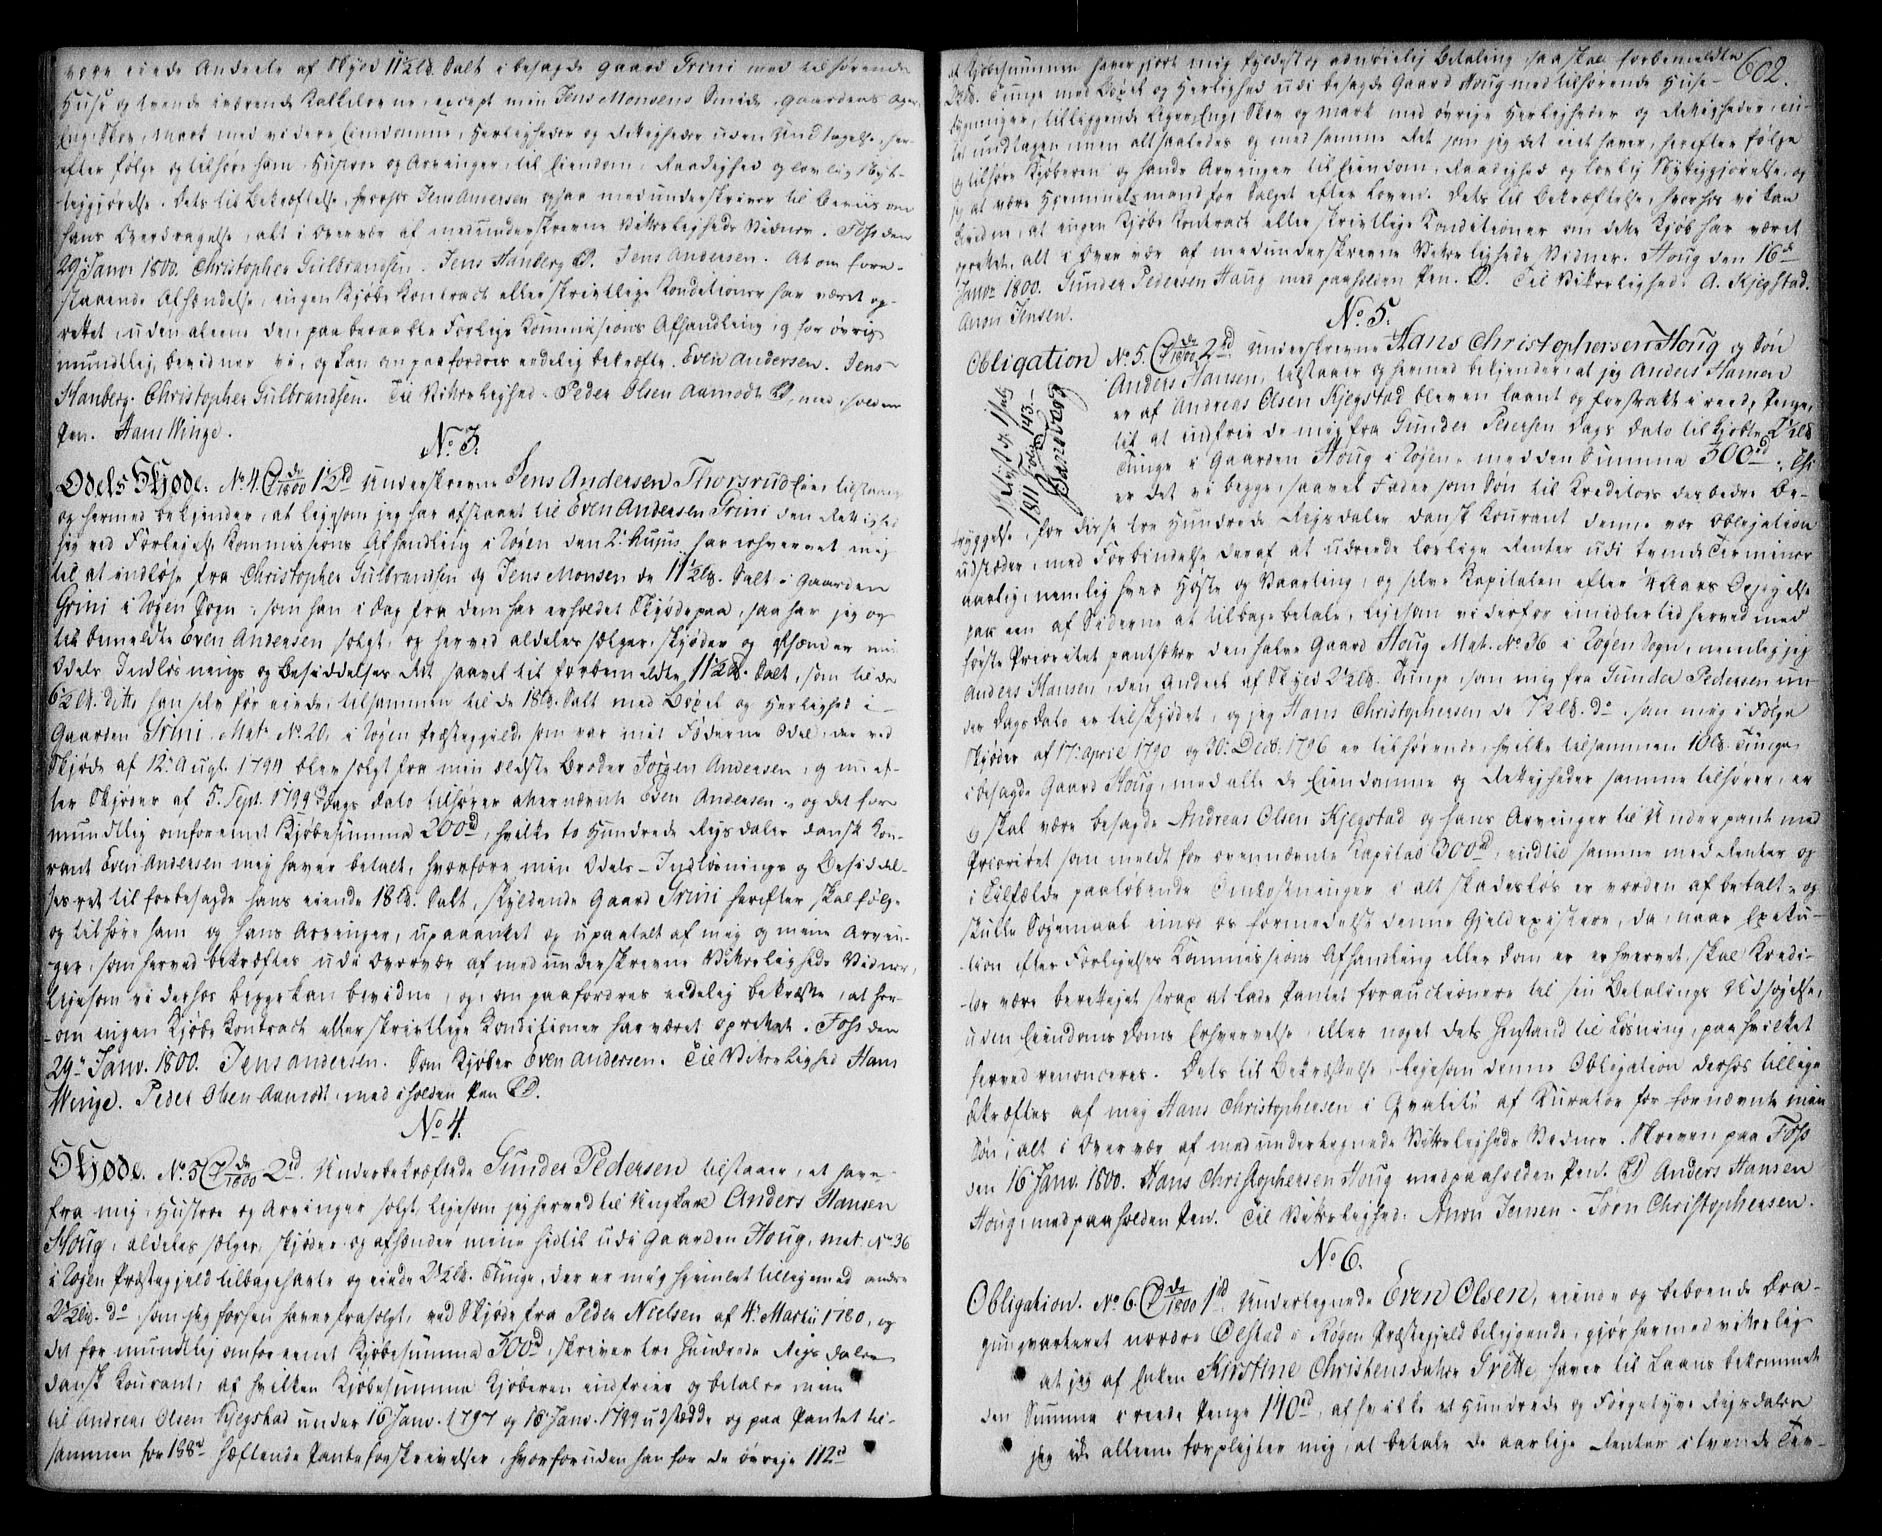 vore eiede Andeele af Skyld 11½ lb. Salt i besagde Gaard Grini med tilhørende
Huse og tvende værende Kakkelovne, except min Jens Monsens Smide, Gaardens Ager,
Eng, Skov, Mark med videre Eiendomme, Herligheder og Rettigheder uden Undtagelse, her-
efter følge og tilhøre ham, Hustroe og Arvinger, til Eiendom, Raadighed og lovlig Nyt-
tiggjørelse. Dets til Bekræftelse, hvorhos Jens Andersen ogsaa medunderskriver til Beviis om
hans Overdragelse, alt i Overvær af medunderskrevne Vitterligheds Vidner. Foss den
29de Janv. 1800. Christopher Gulbrandsen. Jens Hanberg LS. Jens Andersen. At om fore-
staaende Afhændelse, ingen Kjøbe Kontract eller skrivtlige Konditioner har været op-
rettet, uden aleene den paaberaabte Forligs Kommissions Afhandling, og for øvrig
mundtlig, bevidner vi, og kan om paafordres eedelig bekræfte. Even Andersen. Jens
Hanberg. Christopher Gulbrandsen. Til Vitterlighed. Peder Olsen Aamodt LS, med iholden
Pen. Hans Winge.
No. 3.
Odels Skjøde. No. 4 1800 1½ rd Underskrevne Jens Andersen Thorsrudeien tilstaaer
og hermed bekjender, at ligesom jeg har afstaaet til Even Andersen Grini den Rettighed
jeg ved Forligelses Kommissions Afhandling i Røgen den 2. hujus har erhvervet mig
til at indløse fra Christopher Gulbrandsen og Jens Monsen de 11½ lb. Salt i Gaarden
Grini i Røgen Sogn, som han i Dag fra dem har erholdet Skjøde paa, saa har jeg og
til bemeldte Even Andersen solgt, og herved aldeles sælger, skjøder og afhænder min
Odels Indløsnings og Besiddelses Ret saavel til forbemeldte 11½ lb. Salt, som til de
6½ lb. ditto han selv før eiede, tilsammen til de 18 lb. Salt med Bøxel og Herlighed i
Gaarden Grini Mat. No. 20, i Røgen Præstegjeld, som var mit Føderne Odel, der ved
Skjøde af 12. Augt. 1794 blev solgt fra min ældste Broder Jørgen Andersen, og nu ef-
ter Skjøder af 5. Sept. 1799 og Dags Dato tilhører ohernævnte Even Andersen, og det for
mundtlig omforeenet Kjøbesumma 200 rd, hvilke to Hundrede Rigsdaler dansk Kou-
rant Even Andersen mig haver betalt, hvorfore min Odels-Indløsnings og Besiddel-
sesret til forbesagde hans eiende 18 lb. Salt, skyldende Gaard Grini herefter skal følge
og tilhøre ham og hans Arvinger, upaaanket og upaatalt af mig og mine Arvin-
ger, som herved bekræftes udi Overvær af medunderskrevne Vitterligheds Vidner,
ligesom vi derhos begge kan bevidne, og, om paafordres eedelig bekræfte, at her-
om ingen Kjøbe Kontract eller skrivtlige Konditioner har været oprettet. Foss den
29de Janv. 1800. Jens Andersen. Som Kjøber Even Andersen. Til Vitterlighed Hans
Winge. Peder Olsen Aamodt, med iholden Pen LS.
No. 4.
Skjøde. No. 5 1800 2 rd. Underbekræftede Gunder Pedersen tilstaaer, at have
fra mig, Hustroe og Arvinger solgt, ligesom jeg herved til Ungkarl Anders Hansen
Houg, aldeles sælger, skjøder og afhænder mine hidtil udi Gaarden Houg, Mat. No. 36
i Røgen Præstegjeld tilbagehavte og eiede 2½ lb. Tunge, der er mig hiemlet tilligemed andre
2½ lb. do, som jeg forhen haver frasolgt, ved Skjøde fra Peder Nielsen af 4. Martii 1780, og
det for mundtlig omforeenet Kjøbesumma 300 rd, skriver tre Hundrede Rigsdaler
dansk Kourant, af hvilken Kjøbesumma Kjøberen indfrier og betaler mine
til Andreas Olsen Kjegstad under 16 Janv. 1797 og 16 Janv. 1799 udstædde og paa Pantet til-
sammen for 188 rd hæftende Panteforskrivelser, hvorforuden han for de øvrige 112 rd
602.
at Kjøbesummen haver gjort mig fyldest og ednøielig Betaling, saa skal forbemeldte
2½ lb. Tunge med Bøxel og Herlighed udi besagde Gaard Houg med tilhørende Huse-
bygninger, tilliggende Ager, Eng, Skov og Mark med øvrige Herligheder og Rettigheder, in-
tet undtagen, men alt saaledes og med samme Ret som jeg det eiet haver, herefter følge
og tilhøre Kjøberen og hands Arvinger til Eiendom, Raadighed og lovlig Nyttiggjørelse, og
jeg at være Hjemmelsmand for Salget efter Loven. Dets til Bekræftelse, hvorhos vi kan
bevidne, at ingen Kjøbe Kontract eller skrivtlige Konditioner om dette Kjøb har været
oprettet, alt i Overvær af medunderskrevne Vitterligheds Vidner. Houg den 16de
Janv. 1800. Gunder Pedersen Haug med paaholden Pen. LS. Til Vitterlighed. A. Kjegstad.
Aron Jensen.
No. 5.
Obligation No. 5. 1800 2 rd. Underskrevne Hans Christophersen Houg og Søn
Anders Hansen, tilstaaer og hermed bekjender, at jeg Anders Hansen
er af Andreas Olsen Kjegstad bleven laant og forstrakt i reede Penge,
til at indfrie de mig fra Gunder Pedersen Dags Dato tilkjøbte 2½ lb.
Tunge i Gaarden Houg i Røgen, med den Summa 300 rd. Thi
er det vi begge, saavel Fader som Søn til Kreditors desbedre Be-
tryggelse, for disse tre Hundrede Rigsdaler dansk Kourant denne vor Obligation
udstæder, med Forbindelse deraf at udreede lovlige Renter udi tvende Terminer
aarlig, nemlig hver Høste og Vaarting, og selve Kapitalen efter ¼ Aars Opsigelse
paa een af Siderne at tilbage betale, ligesom vi derfor imidlertid herved med
første Prioritet pantsætter den halve Gaard Houg Mat. No. 36 i Røgen Sogn, nemlig jeg
Anders Hansen, den Andeel af Skyld 2½ lb. Tunge, som mig fra Gunder Pedersen un-
der Dags Dato er tilskjødet, og jeg Hans Christophersen de 7½ lb. do som mig i Følge
Skjøder af 17. April 1790 og 30. Decb. 1796 er tilhørende, hvilke tilsammen 10 lb. Tunge
i besagde Gaard Houg, med alle de Eiendomme og Rettigheder samme tilhører, er
og skal være besagde Andreas Olsen Kjegstad og hans Arvinger til Underpant med
Prioritet som meldt for ovennævnte Kapital 300 rd, indtil samme med Renter og
i Tilfælde paaløbende Omkostninger i alt skadesløs er vorden afbetalt, og
skulle Søgemaal imod os formedelst denne Gjeld existere, da, naar Exeku-
tion efter Forligelses Kommissions Afhandling eller Dom er erhvervet, skal Kredi-
tor være berettiget strax at lade Pantet forauctionere til sin Betalings Udsøgelse,
uden Eiendoms Doms Erhvervelse eller noget dets Henstand til Løsning, paa hvilket
herved renonceres. Dets til Bekræftelse, ligesom denne Obligation derhos tillige
bekræftes af mig Hans Christophersen i Qvalité af Kurator for fornævnte min
Søn, alt i Overvær af medundertegnede Vitterligheds Vidner. Skreven paa Foss
den 16 Janv. 1800. Hans Christophersen Houg med paaholden Pen. LS Anders Hansen
Houg, med paaholden Pen. Til Vitterlighed. Aron Jensen. Jørn Christophersen.
1811 Folio 143.
No. 6.
Obligation. No. 6. 1800 1 rd. Undertegnede Even Olsen, eiende og beboende Dra-
gunqvarteret nordre Ølstad i Røgen Præstegjeld beliggende, gjør hermed vitterlig
at jeg af Enken Kirstine Christensdatter Grette, haver til Laans bekommet
den Summa i reede Penge 140 rd, af hvilke et Hundrede og Førgetyve Rigsdaler
jeg alleene forpligter mig, at betale de aarlige Renter i tvende Ter-